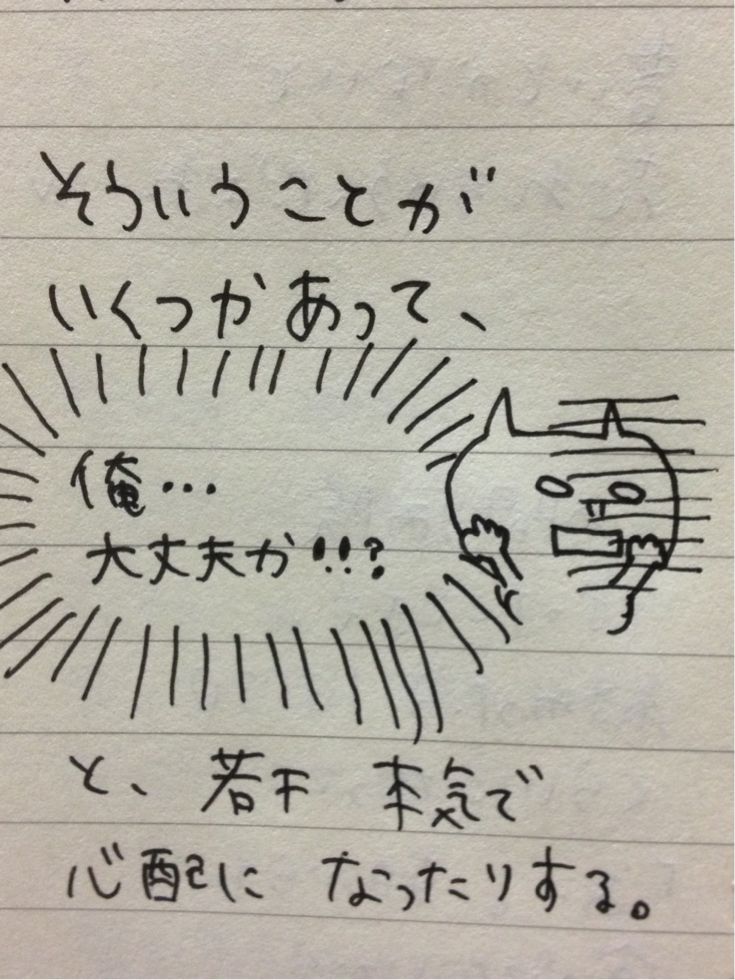 そういうことが
いくつかあって、
俺…
大丈夫か!!?
と、若干 本気で
心配に なったりする。